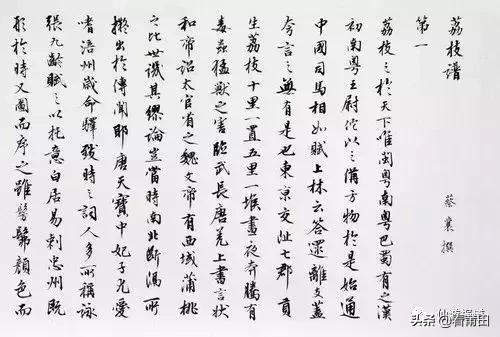 荔枝譜
第一
蔡襄撰
荔枝之於天下唯閩粵南粵巴蜀有之漢
初南粵王尉佗以之備方物於是始通
中國司馬相如賦上林云答遝離支蓋
夸言之無有是也東京交阯七郡貢
生荔枝十里一置五里一堠晝夜奔騰有
毒蟲猛獸之害臨武長唐羌上書言狀
和帝詔太官省之魏文帝有西域蒲桃
之比世譏其繆論豈當時南北斷隔所
擬出於傳聞耶唐天寶中妃子尤愛
嗜涪州歲命驛致時之詞人多所稱詠
張九齡賦之以托意白居易刺忠州既
形於詩又圖而序之雖髣髴顏色而
头条 @看莆田